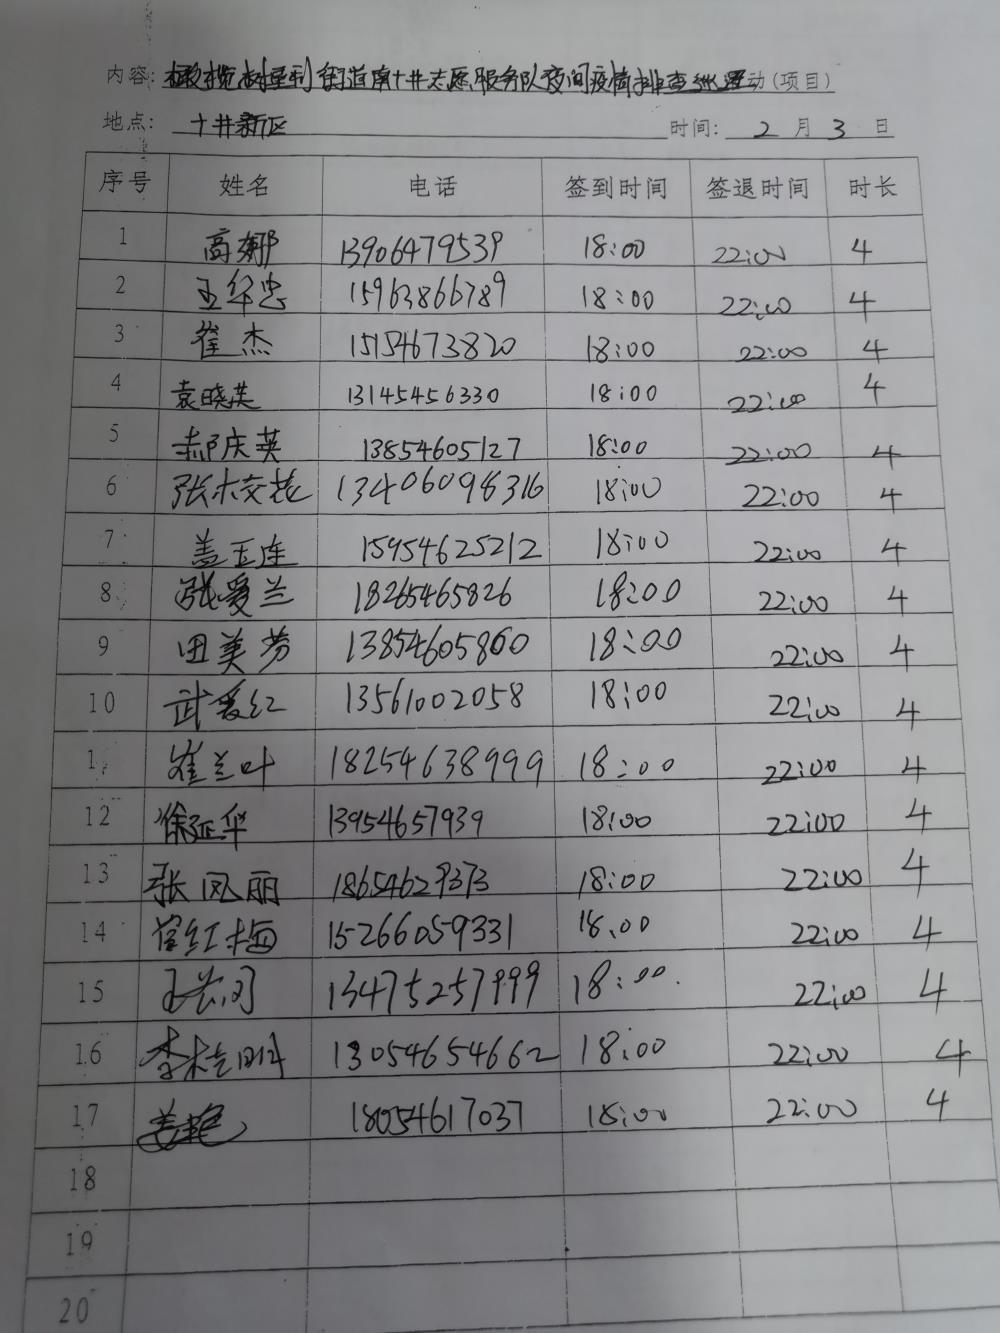 内容: 橄榄树垦利街道南十井志愿服务队夜间疫情排查巡逻动(项目)
地点: 十井新区 时间: 2 月 3 日
序号 姓名 电话 签到时间 签退时间 时长
1 高娜 13906479539 18:00 22:00 4
2 王华忠 15963866789 18:00 22:00 4
3 崔杰 15154673820 18:00 22:00 4
4 袁晓英 13145456330 18:00 22:00 4
5 郝庆英 13854605127 18:00 22:00 4
6 张校花 13406098316 18:00 22:00 4
7 盖玉连 15954625212 18:00 22:00 4
8 张爱兰 18265465826 18:00 22:00 4
9 田美芳 13854605860 18:00 22:00 4
10 武爱红 13561002058 18:00 22:00 4
1 崔兰叶 18254638999 18:00 22:00 4
12 徐延华 13954657939 18:00 22:00 4
13 张凤丽 18654629373 18:00 22:00 4
14 崔红梅 15266059331 18:00 22:00 4
15 13475257999 18:00 22:00 4
16 李桂明 13054654662 18:00 22:00 4
17 姜艳 18054617037 18:00 22:00 4
18
19
20